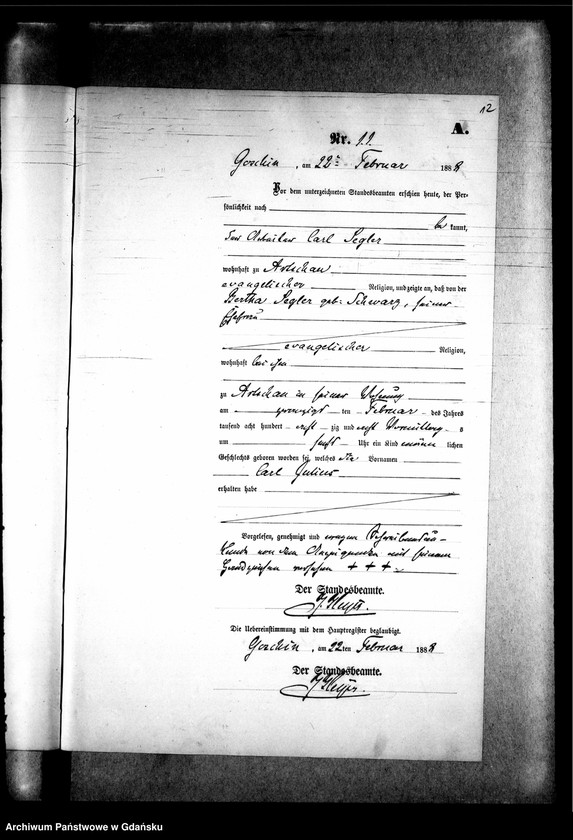 12
A.
Nr. 11.
Goschin, am 22ten Februar 1888
Vor dem unterzeichneten Standesbeamten erschien heute, der Per-
sönlichkeit nach
be kannt,
der Arbeiter Carl Segler
wohnhaft zu Artschau
evangelischer Religion, und zeigte an, daß von der
Bertha Segler geb. Schwarz, seiner
Ehefrau
evangelischer Religion,
wohnhaft bei ihm
zu Artschau in seiner Wohnung
am zwanzigsten Februar des Jahres
tausend acht hundert acht zig und acht Vormittag s
um Uhr ein Kind männ lichen
Geschlechts geboren worden sei, welches die Vornamen
Carl Julius
erhalten habe
Vorgelesen, genehmigt und wegen Schreibensun-
kunde von dem Anzeigenden mit seinem
Handzeichen versehen + + +
Der Standesbeamte.
Die Uebereinstimmung mit dem Hauptregister beglaubigt.
Goschin, am 22ten Februar 1888
Der Standesbeamte.
Archiwum Państwowe w Gdańsku